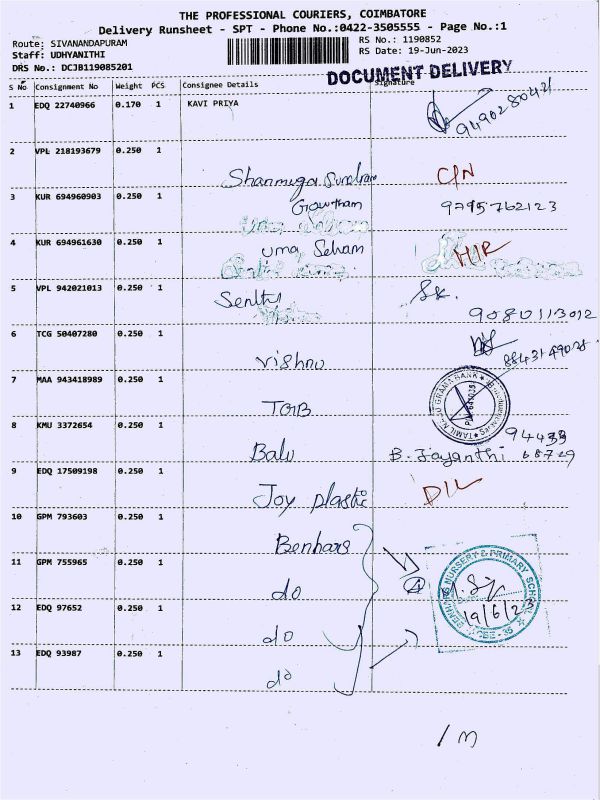 THE PROFESSIONAL COURIERS, COIMBATORE
Delivery Runsheet - SPT - Phone No.:0422-3505555 - Page No.:1
Route: SIVANANDAPURAM RS No.: 1190852
Staff: UDHYANITHI RS Date: 19-Jun-2023
DRS No.: DCJB119085201
DOCUMENT DELIVERY
S No Consignment No Weight PCS Consignee Details Signature
1 EDQ 22740966 0.170 1 KAVI PRIYA
2 VPL 218193679 0.250 1
Shanmuga Sundram C/N
3 KUR 694960903 0.250 1 Gowtham 9795762123
4 KUR 694961630 0.250 1 uma Selvam
5 VPL 942021013 0.250 1 Senthil SK.
9080113012
6 TCG 50407280 0.250 1
Vishnu
7 MAA 943418989 0.250 1
TGB TAMIL NADU GRAMA BANK
8 KMU 3372654 0.250 1 94433
Balu B. Jayanthi 68729
9 EDQ 17509198 0.250 1
Joy plastic D/L
10 GPM 793603 0.250 1
Benhars
11 GPM 755965 0.250 1 4
do NURSERY & PRIMARY SCHOOL
12 EDQ 97652 0.250 1 19/6/23
do CBE - 35
13 EDQ 93987 0.250 1
do